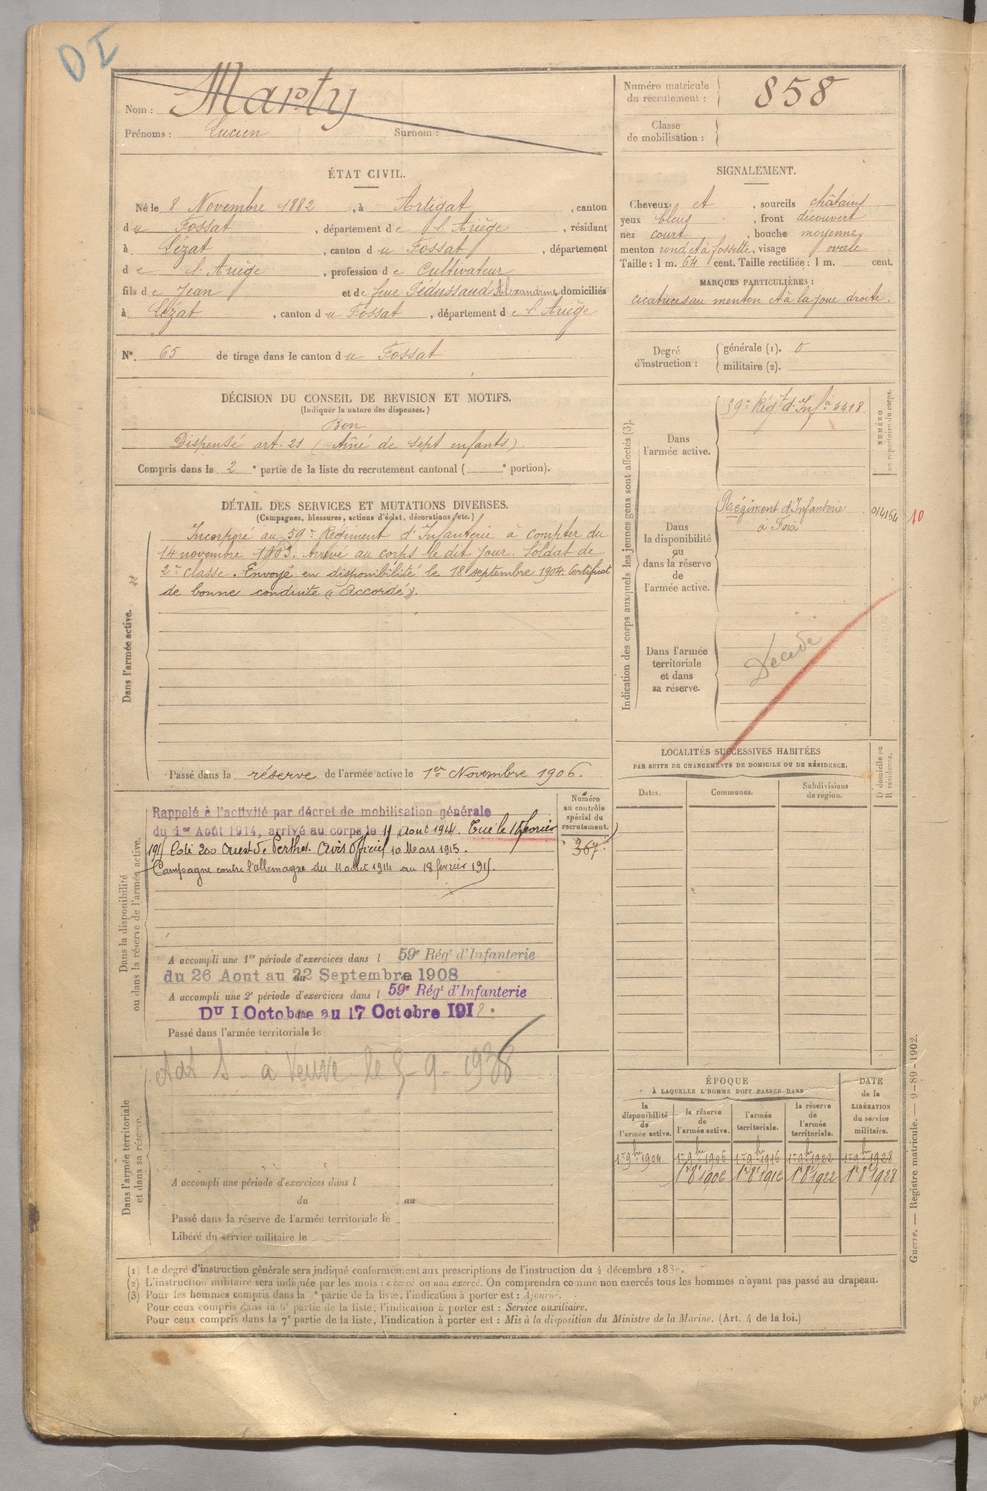 DI
Nom : Marty
Prénoms : Lucien Surnom :
Numéro matricule du recrutement : 858
Classe de mobilisation :
ÉTAT CIVIL.
Né le 8 Novembre 1882, à Artigat, canton
du Fossat, département de l'Ariège, résidant
à Lézat, canton du Fossat, département
de l'Ariège, profession de Cultivateur
fils de Jean et de feue Fédussaud Alexandrine domiciliés
à Lézat, canton du Fossat, département de l'Ariège
N°. 65 de tirage dans le canton du Fossat
SIGNALEMENT.
Cheveux et, sourcils châtains
yeux bleus, front découvert
nez court, bouche moyenne
menton rond et à fossette, visage ovale
Taille : 1 m. 64 cent. Taille rectifiée : 1 m. cent.
MARQUES PARTICULIÈRES :
cicatrices au menton et à la joue droite.
Degré d'instruction : générale (1). 0
militaire (2).
DÉCISION DU CONSEIL DE REVISION ET MOTIFS.
(Indiquer la nature des dispenses.)
Bon
Dispensé art. 21 (Aîné de sept enfants).
Compris dans la 2e partie de la liste du recrutement cantonal ( e portion).
DÉTAIL DES SERVICES ET MUTATIONS DIVERSES.
(Campagnes, blessures, actions d'éclat, décorations, etc.)
Dans l'armée active.
Incorporé au 59e Régiment d'Infanterie à compter du
14 novembre 1903. Arrivé au corps le dit jour. Soldat de
2e classe. Envoyé en disponibilité le 18 septembre 1904. Certificat
de bonne conduite "Accordé".
Passé dans la réserve de l'armée active le 1er Novembre 1906.
Indication des corps auxquels les jeunes gens sont affectés (3).
Dans l'armée active.
59e Régt d'Infie 4418
NUMÉRO au répertoire du corps.
Dans la disponibilité ou dans la réserve de l'armée active.
Régiment d'Infanterie
à Foix
10
Dans l'armée territoriale et dans sa réserve.
Décédé
LOCALITÉS SUCCESSIVES HABITÉES
PAR SUITE DE CHANGEMENTS DE DOMICILE OU DE RÉSIDENCE.
Dates.
Communes.
Subdivisions de région.
D. domicile ou R. résidence.
Dans la disponibilité ou dans la réserve de l'armée active.
Numéro au contrôle spécial du recrutement.
367
Rappelé à l'activité par décret de mobilisation générale
du 1er Août 1914, arrivé au corps le 11 août 1914. Tué le 18 février
1915 Cote 200 Ouest de Perthes. Avis officiel 10 Mars 1915.
Campagne contre l'Allemagne du 11 août 1914 au 18 février 1915.
A accompli une 1re période d'exercices dans l 59e Régt d'Infanterie
du 26 Aout au 22 Septembre 1908
A accompli une 2e période d'exercices dans l 59e Régt d'Infanterie
Du 1 Octobre au 17 Octobre 1912.
Passé dans l'armée territoriale le
Dans l'armée territoriale et dans sa réserve.
à Veuve le 5-9-1938
A accompli une période d'exercices dans l
du au
Passé dans la réserve de l'armée territoriale le
Libéré du service militaire le
ÉPOQUE
À LAQUELLE L'HOMME DOIT PASSER DANS
la disponibilité de l'armée active.
la réserve de l'armée active.
l'armée territoriale.
la réserve de l'armée territoriale.
DATE de la LIBÉRATION du service militaire.
1er 9bre 1904 1er 9bre 1906 1er 9bre 1916 1er 9bre 1922 1er 9bre 1928
1r 8e 1906 1r 8e 1916 1r 8e 1922 1r 8e 1928
Guerre. — Registre matricule. — 9-89-1902.
(1) Le degré d'instruction générale sera indiqué conformément aux prescriptions de l'instruction du 4 décembre 1889.
(2) L'instruction militaire sera indiquée par les mots : exercé ou non exercé. On comprendra comme non exercés tous les hommes n'ayant pas passé au drapeau.
(3) Pour les hommes compris dans la e partie de la liste, l'indication à porter est : Ajourné.
Pour ceux compris dans la 6e partie de la liste, l'indication à porter est : Service auxiliaire.
Pour ceux compris dans la 7e partie de la liste, l'indication à porter est : Mis à la disposition du Ministre de la Marine. (Art. 4 de la loi.)